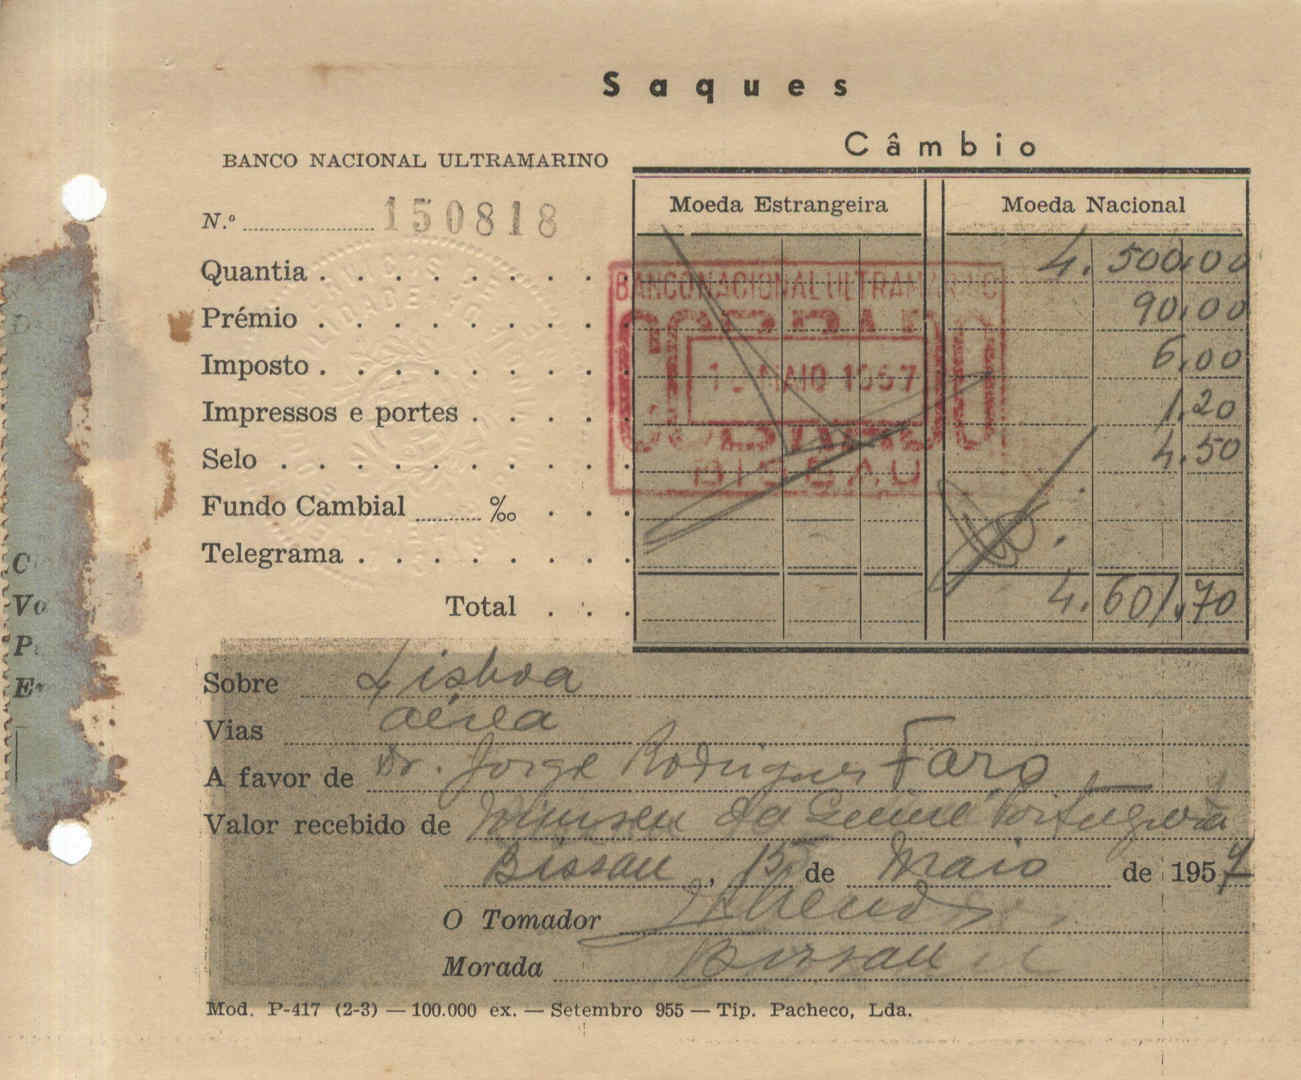 Saques
Câmbio
BANCO NACIONAL ULTRAMARINO
Moeda Estrangeira Moeda Nacional
N.º 150818
Quantia 4.500,00
Prémio 90,00
Imposto 6,00
Impressos e portes 1,20
Selo 4,50
Fundo Cambial ‰
Telegrama
Total 4.601,70
BANCO NACIONAL ULTRAMARINO
COBRADO
MAIO 1957
BISSAU
Sobre Lisboa
Vias aérea
A favor de Dr. Jorge Rodrigues Faro
Valor recebido de Museu da Guiné Portuguesa
Bissau, 15 de Maio de 1957
O Tomador
Morada Bissau
Mod. P-417 (2-3) — 100.000 ex. — Setembro 955 — Tip. Pacheco, Lda.